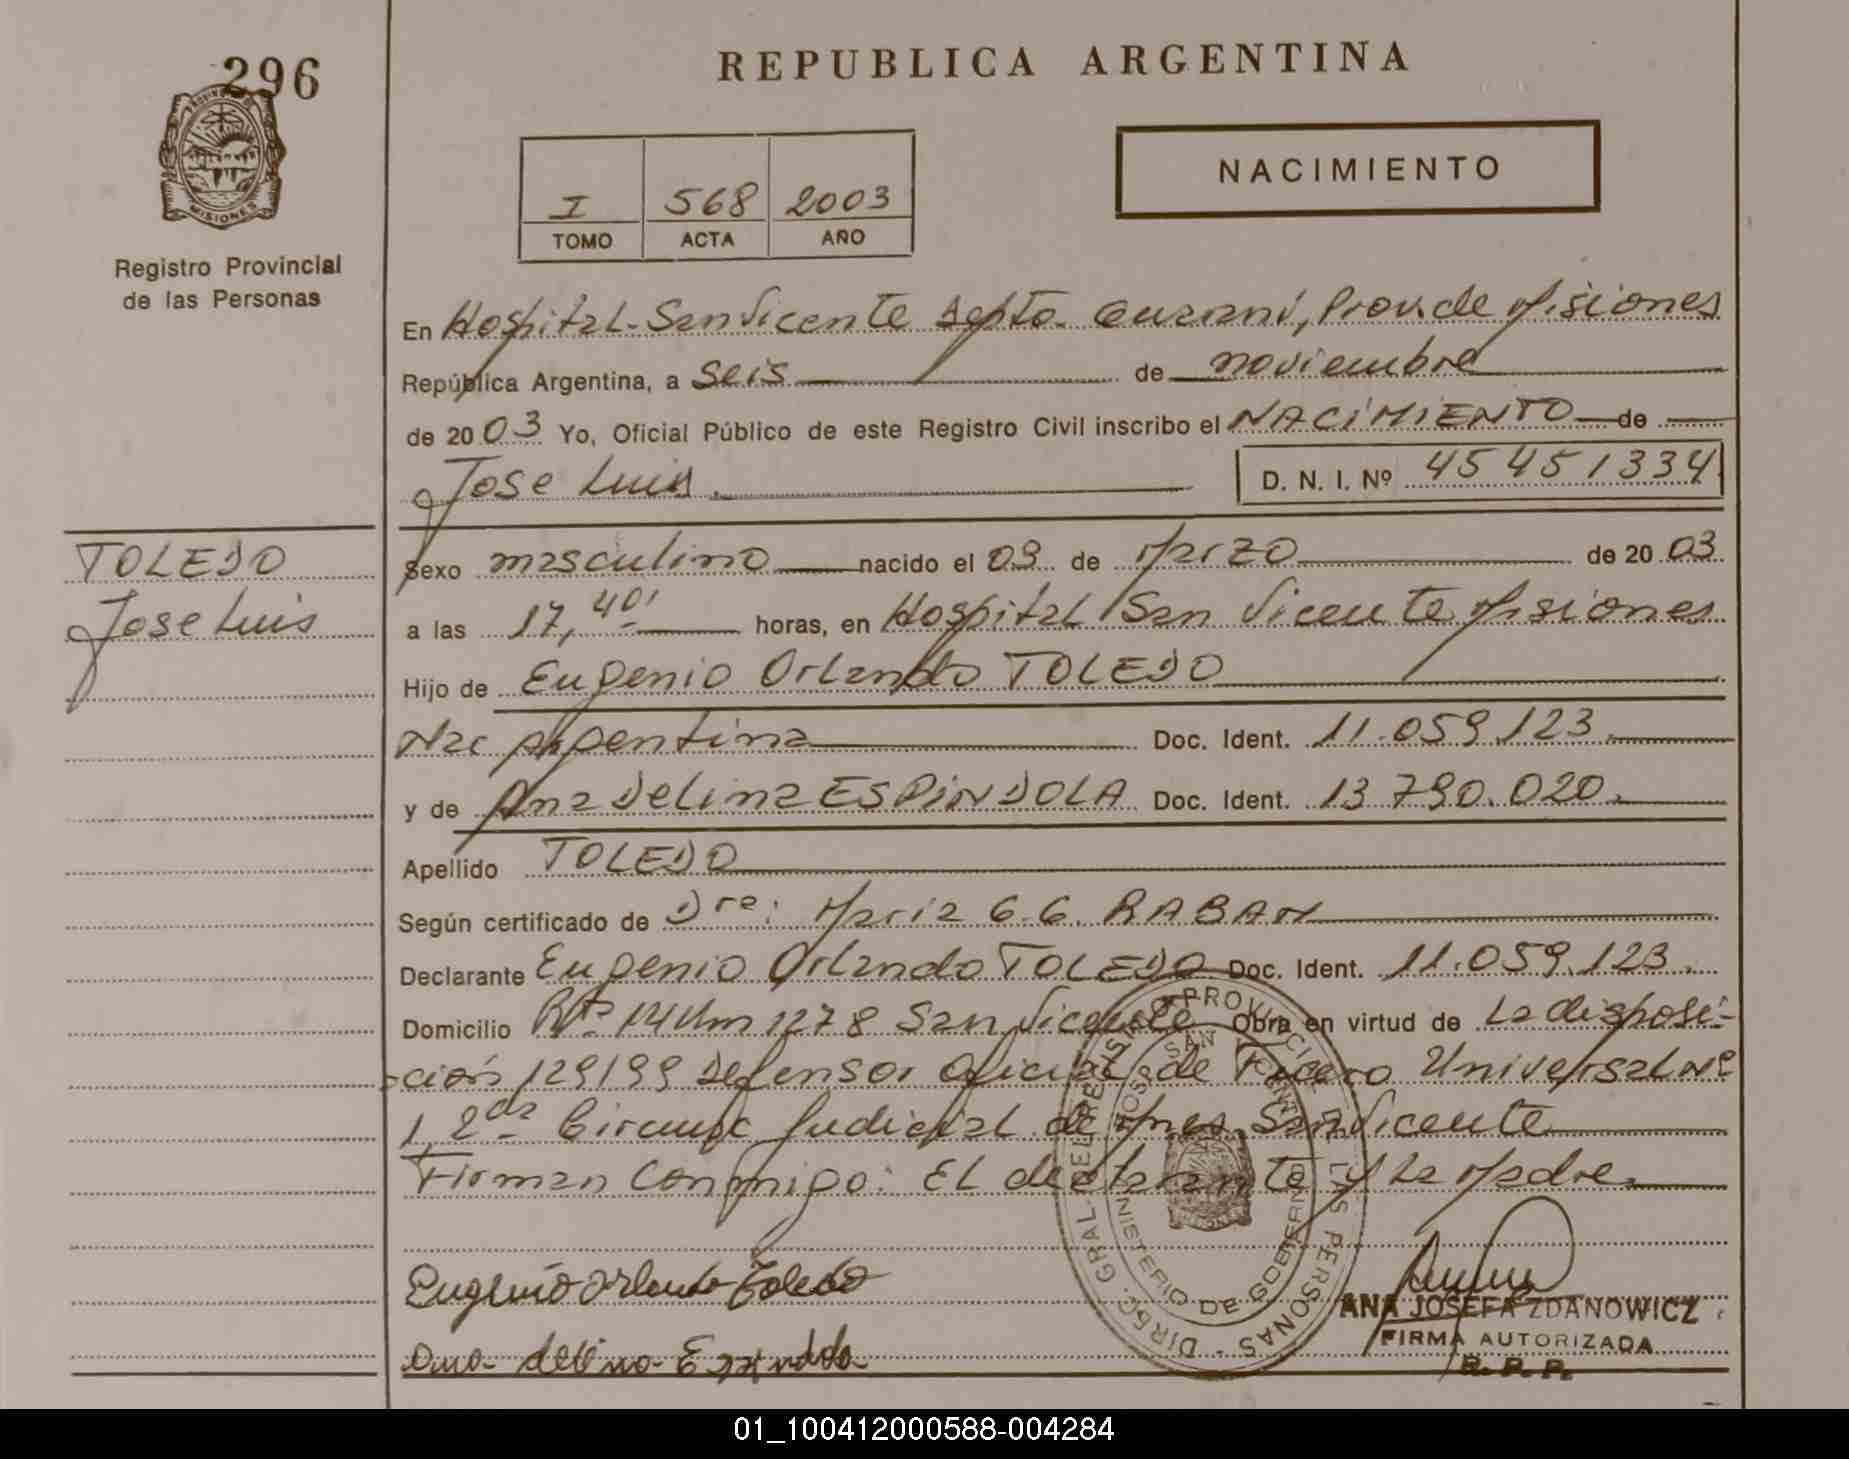 296
REPUBLICA ARGENTINA
PROVINCIA DE
MISIONES
Registro Provincial
de las Personas
I 568 2003
TOMO ACTA AÑO
NACIMIENTO
En Hospital San Vicente Depto Guarani, Prov. de Misiones
República Argentina, a Seis de noviembre
de 2003 Yo, Oficial Público de este Registro Civil inscribo el NACIMIENTO de
Jose Luis D. N. I. Nº 45451334
TOLEDO
Jose Luis
Sexo masculino nacido el 09 de Marzo de 2003
a las 17,40' horas, en Hospital San Vicente Misiones
Hijo de Eugenio Orlando TOLEDO
Nac Argentina Doc. Ident. 11.059.123
y de Ana Delina ESPINDOLA Doc. Ident. 13 790.020
Apellido TOLEDO
Según certificado de Dra: Maria G. G. RABAN
Declarante Eugenio Orlando TOLEDO Doc. Ident. 11.059.123
Domicilio Rta 14 Km 1278 San Vicente Obra en virtud de La disposi-
ción 129/99 Defensor Oficial de Fuero Universal Nº
1, 2da Circunsc Judicial de Mnes. San Vicente
Firman Conmigo: El declarante y La Madre
Eugenio Orlando Toledo
Ana delina Espindola
DIREC. GRAL. DEL REGISTRO PROVINCIAL DE LAS PERSONAS
HOSP. SAN VICENTE
MINISTERIO DE GOBIERNO
ANA JOSEFA ZDANOWICZ
FIRMA AUTORIZADA
R. P. P.
01_100412000588-004284